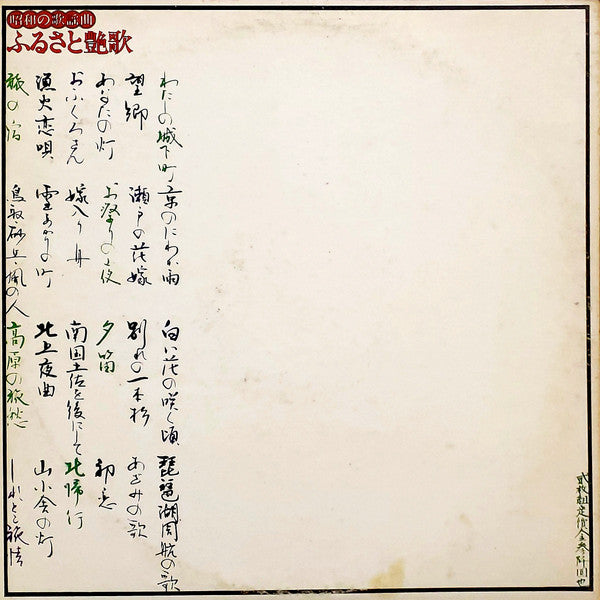 昭和の歌謡曲
ふるさと艶歌
わたしの城下町 京のにわか雨 白い花の咲く頃 琵琶湖周航の歌
望郷 瀬戸の花嫁 別れの一本杉 あざみの歌
あなたの灯 お祭りの夜 夕笛 初恋
おふくろさん 嫁入り舟 南国土佐を後にして 北帰行
漁火恋唄 雪あかりの町 北上夜曲 山小舎の灯
旅の宿 鳥取砂丘・風の人 高原の旅愁 しれとこ旅情
弐枚組定價金参阡円也